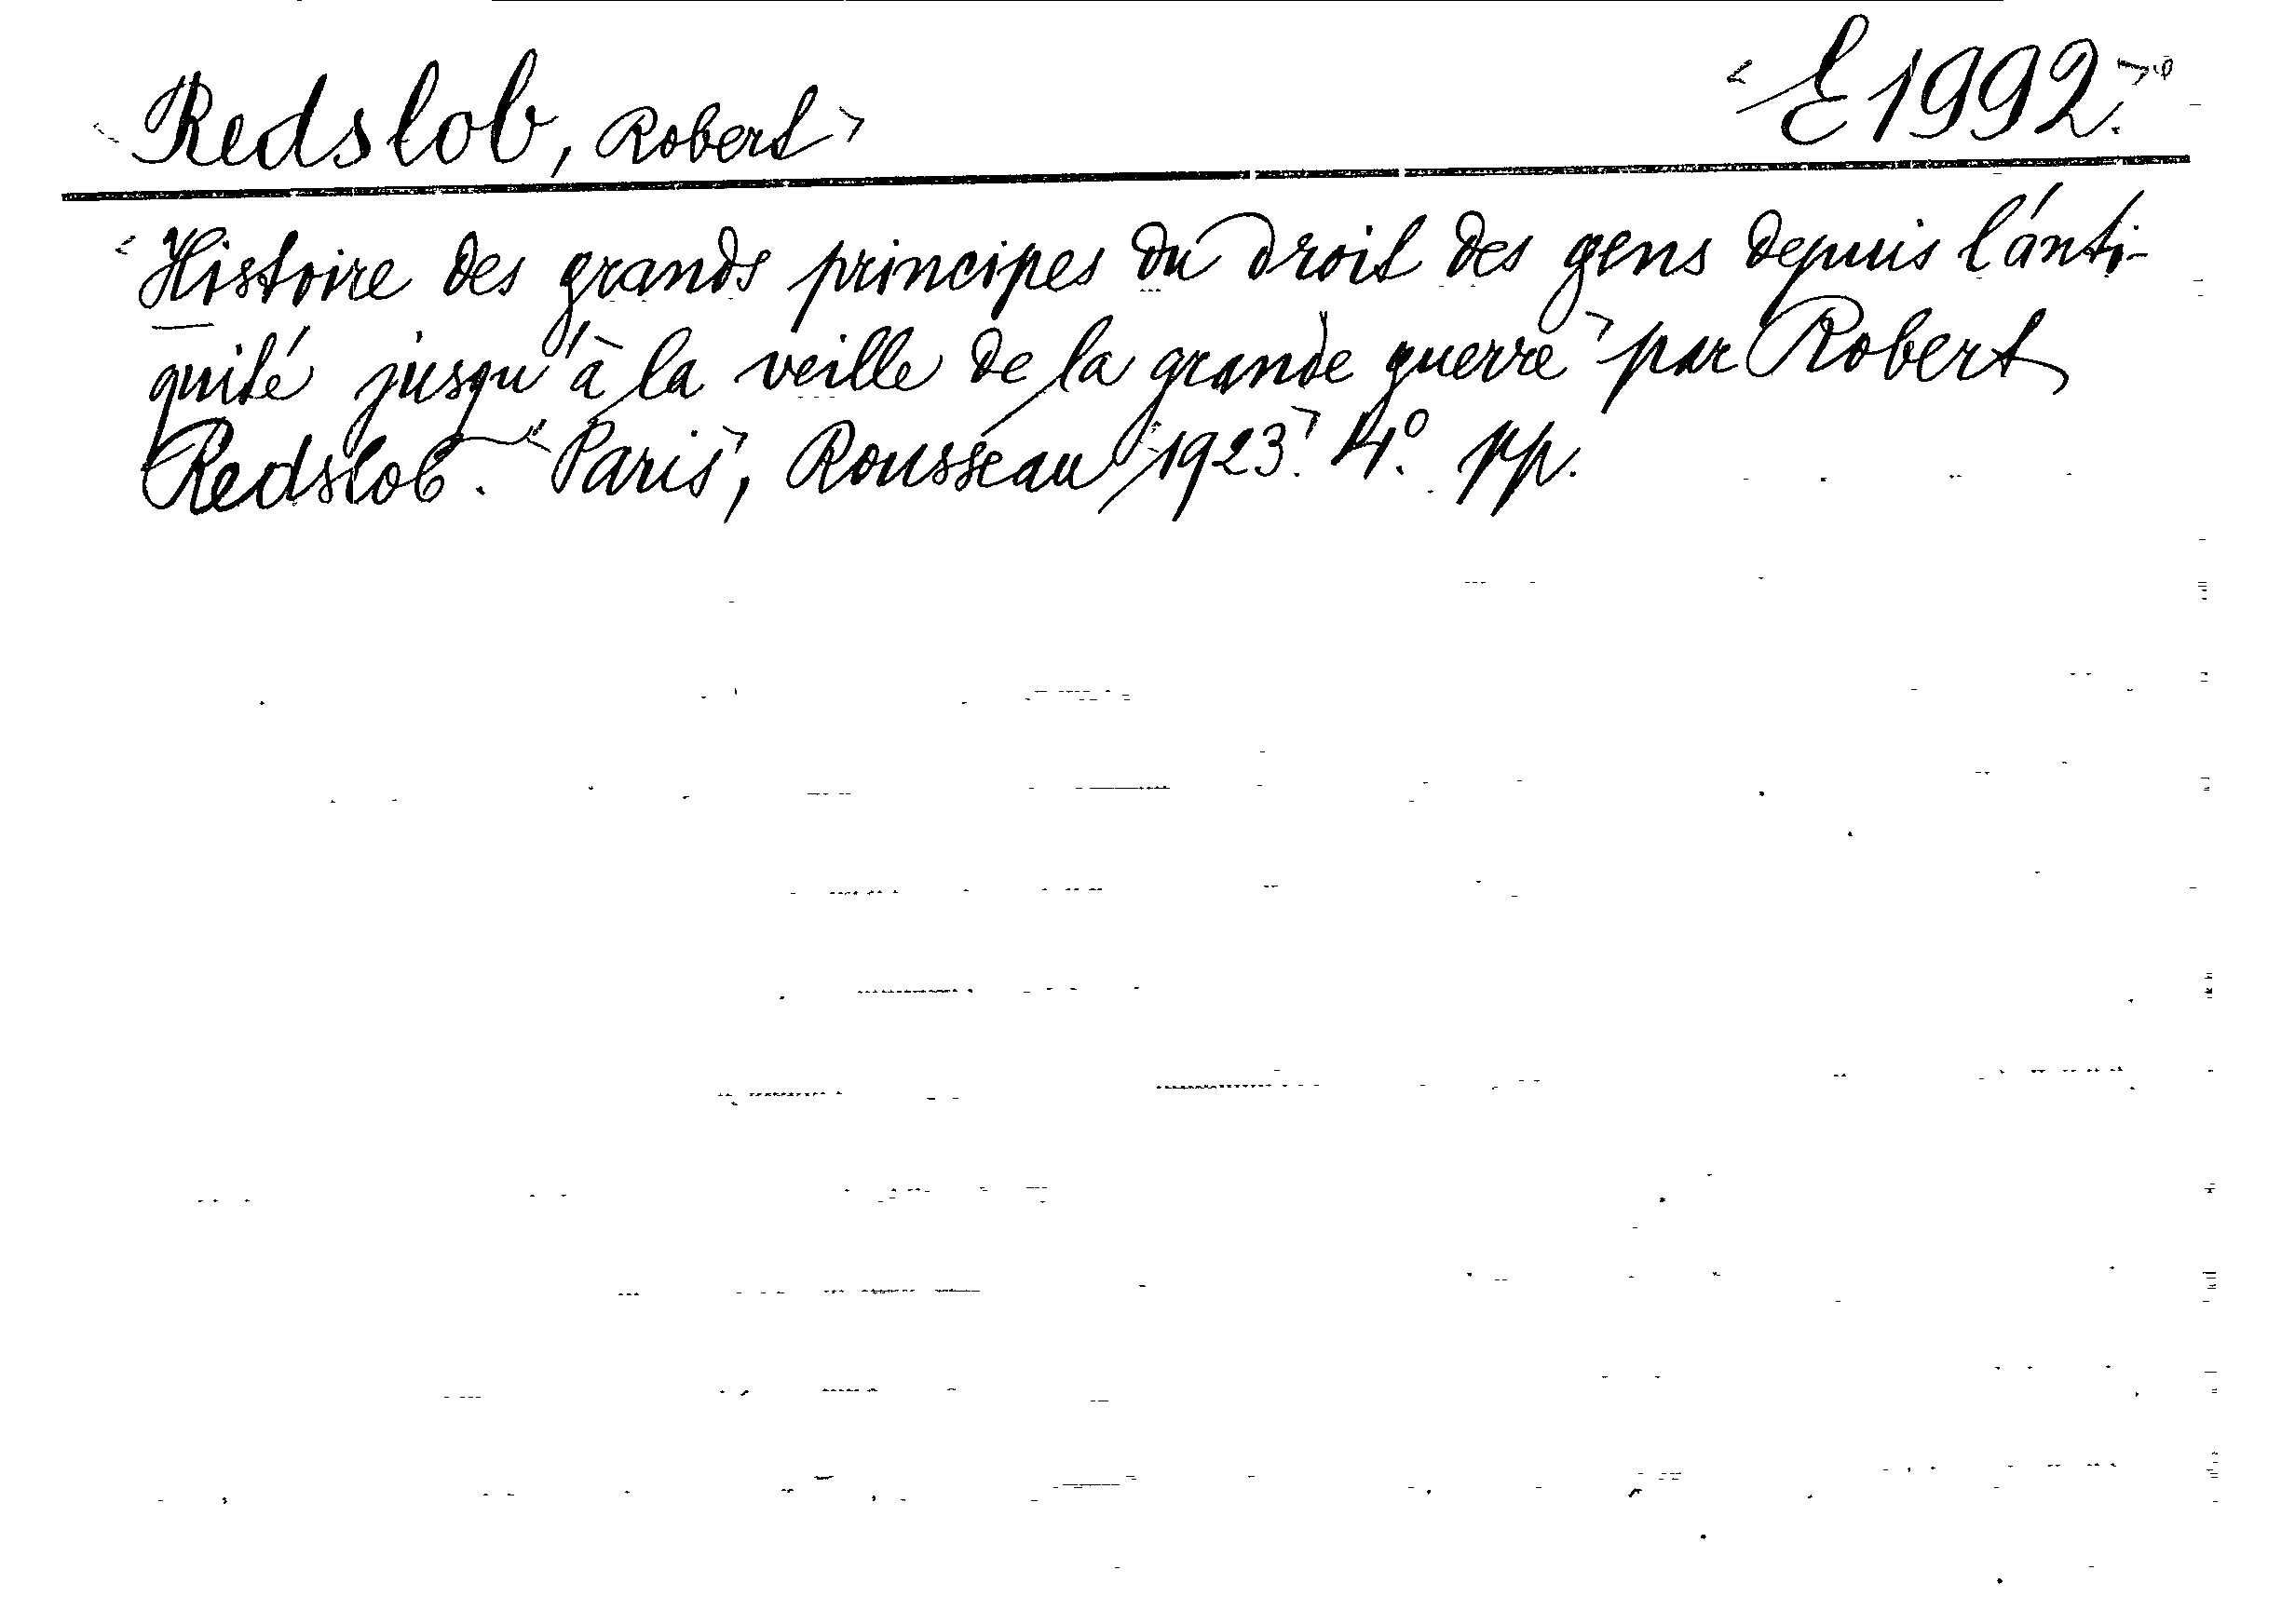 Redslob, Robert
E 1992.
Histoire des grands principes du droit des gens depuis l'anti-
quité jusqu'à la veille de la grande guerre par Robert
Redslob. Paris, Rousseau 1923. 4° pp.